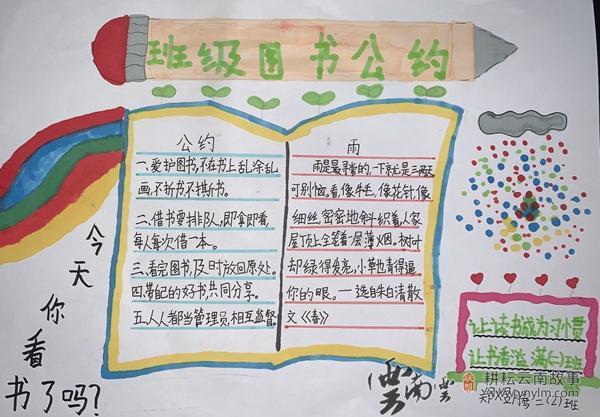 班级图书公约
公约
一、爱护图书,不在书上乱涂乱
画,不折书不撕书。
二、借书要排队,即拿即看,
每人每次借一本。
三、看完图书,及时放回原处。
四、带配的好书,共同分享。
五、人人都当管理员,相互监督。
雨
雨是最寻常的,一下就是三两天
可别恼。看,像牛毛,像花针,像
细丝,密密地斜织着,人家
屋顶上全笼着一层薄烟。树叶
却绿得发亮,小草也青得逼
你的眼。——选自朱自清散
文《春》
今天你看
书了吗?
让读书成为习惯
让书香溢满二(2)班
二(2)班
雲南雲
耕耘云南故事